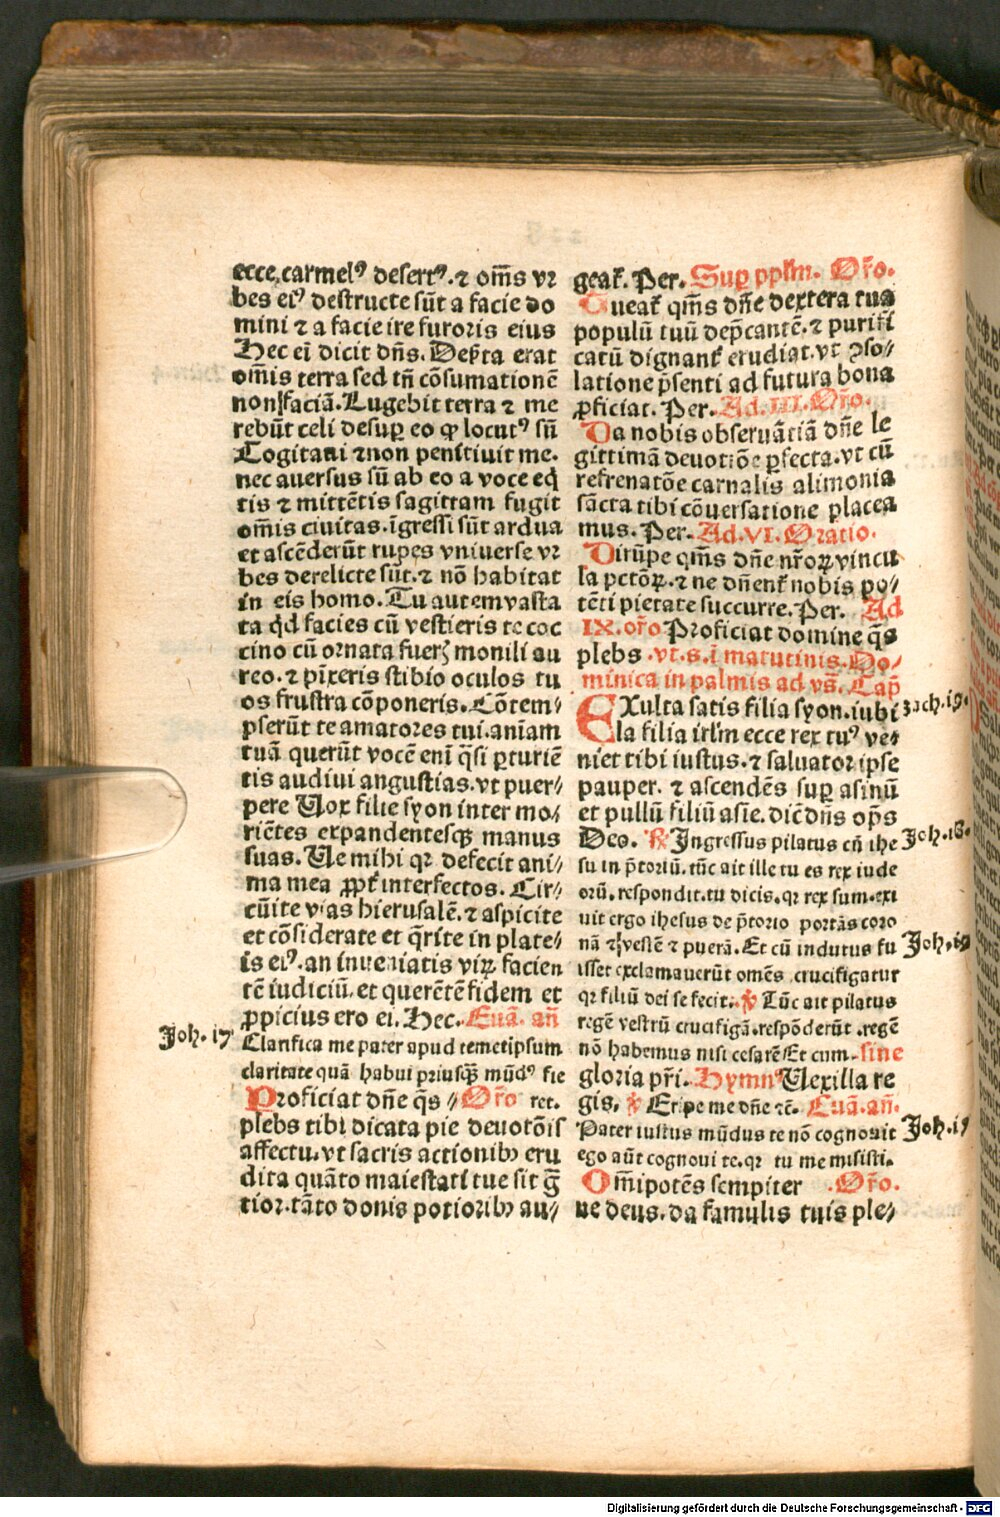 ecce carmelꝰ desertꝰ. ⁊ om̄s vr
bes eiꝰ destructe sūt a facie do
mini ⁊ a facie ire furoris eius
Hec eī dicit dn̄s. Dep̄ta erat
om̄is terra sed tn̄ cōsumationē
non faciā. Lugebit terra ⁊ me
rebūt celi desuꝑ eo ꝙ locutꝰ sū
Cogitaui ⁊non penitiuit me.
nec auersus sū ab eo a voce eq̄
tis ⁊ mittētis sagittam fugit
om̄is ciuitas. īgressi sūt ardua
et ascēderūt rupes vniuerse vr
bes derelicte sūt. ⁊ nō habitat
in eis homo. Tu autem vasta
ta qd̄ facies cū vestieris te coc
cino cū ornata fuerꝭ monili au
reo. ⁊ pīxeris stibio oculos tu
os frustra cōponeris. Cōtem/
pserūt te amatores tui. aniam
tuā querūt vocē enī q̄si ꝑturiē
tis audiui angustias. vt puer/
pere Uox filie syon inter mo/
riētes expandentesqꝫ manus
suas. Ue mihi qꝛ defecit ani/
ma mea ꝓpt̄ interfectos. Cir/
cūite vias hierusalē. ⁊ aspicite
et cōsiderate et q̄rite in plate/
is eiꝰ. an inueniatis viꝝ facien
tē iudiciū. et querētē fidem et
ꝓpicius ero ei. Hec. Euā. an̄
Joh. 17
Clarifica me pater apud temetipsum
claritate quā habui priusqꝫ mūdꝰ fie
Proficiat dn̄e q̄s // Or̄o ret.
plebs tibi dicata pie deuotōis
affectu. vt sacris actionibꝰ eru
dita quāto maiestati tue sit ḡ
tior. tāto donis potioribꝰ au/
geat̄. Per. Suꝑ ppl̄m. Or̄o.
Tueat̄ q̄m̄s dn̄e dextera tua
populū tuū dep̄cantē. ⁊ purifi
catū dignant̄ erudiat. vt ꝯso/
latione p̄senti ad futura bona
ꝓficiat. Per. Ad. III. Or̄o.
Da nobis obseruātiā dn̄e le
gittimā deuotiōe ꝑfecta. vt cū
refrenatōe carnalis alimonia
sācta tibi cōuersatione placea
mus. Per. Ad. VI. Oratio.
Dirūpe q̄m̄s dn̄e nr̄oꝝ vincu
la pctōꝝ. ⁊ ne dn̄ent̄ nobis po/
tēti pietate succurre. Per. Ad
IX. or̄o Proficiat domine q̄s
plebs. vt. s. ī matutinis. Do/
minica in palmis ad vs̄. Cap̄
EXulta satis filia syon. iubi
Zach. 19.
la filia irl̄m ecce rex tuꝰ ve/
niet tibi iustus. ⁊ saluator ipse
pauper. ⁊ ascendēs suꝑ asinū
et pullū filiū asie. dic̄ dn̄s op̄s
Deo. ℟ Ingressus pilatus cū ihe
Joh. 18.
su in p̄toriū. tūc ait ille tu es rex iude
orū. respondit. tu dicis. qꝛ rex sum. exi
uit ergo ihesus de p̄torio portās coro
nā ⁊ vestē ⁊ puerā. Et cū indutus fu
Joh. 19
isset exclamauerūt omēs crucifigatur
qꝛ filiū dei se fecit. ℣ Tūc ait pilatus
regē vestrū crucifigā. respōderūt. regē
nō habemus nisi cesarē Et cum. sine
gloria pr̄i. Hymnꝰ Uexilla re
gis. ℣ Eripe me dn̄e ⁊c̄. Euā. an̄.
Pater iustus mūdus te nō cognouit
Joh. 17
ego aūt cognoui te. qꝛ tu me misisti.
Om̄ipotēs sempiter Or̄o.
ne deus. da famulis tuis ple/
Digitalisierung gefördert durch die Deutsche Forschungsgemeinschaft - DFG